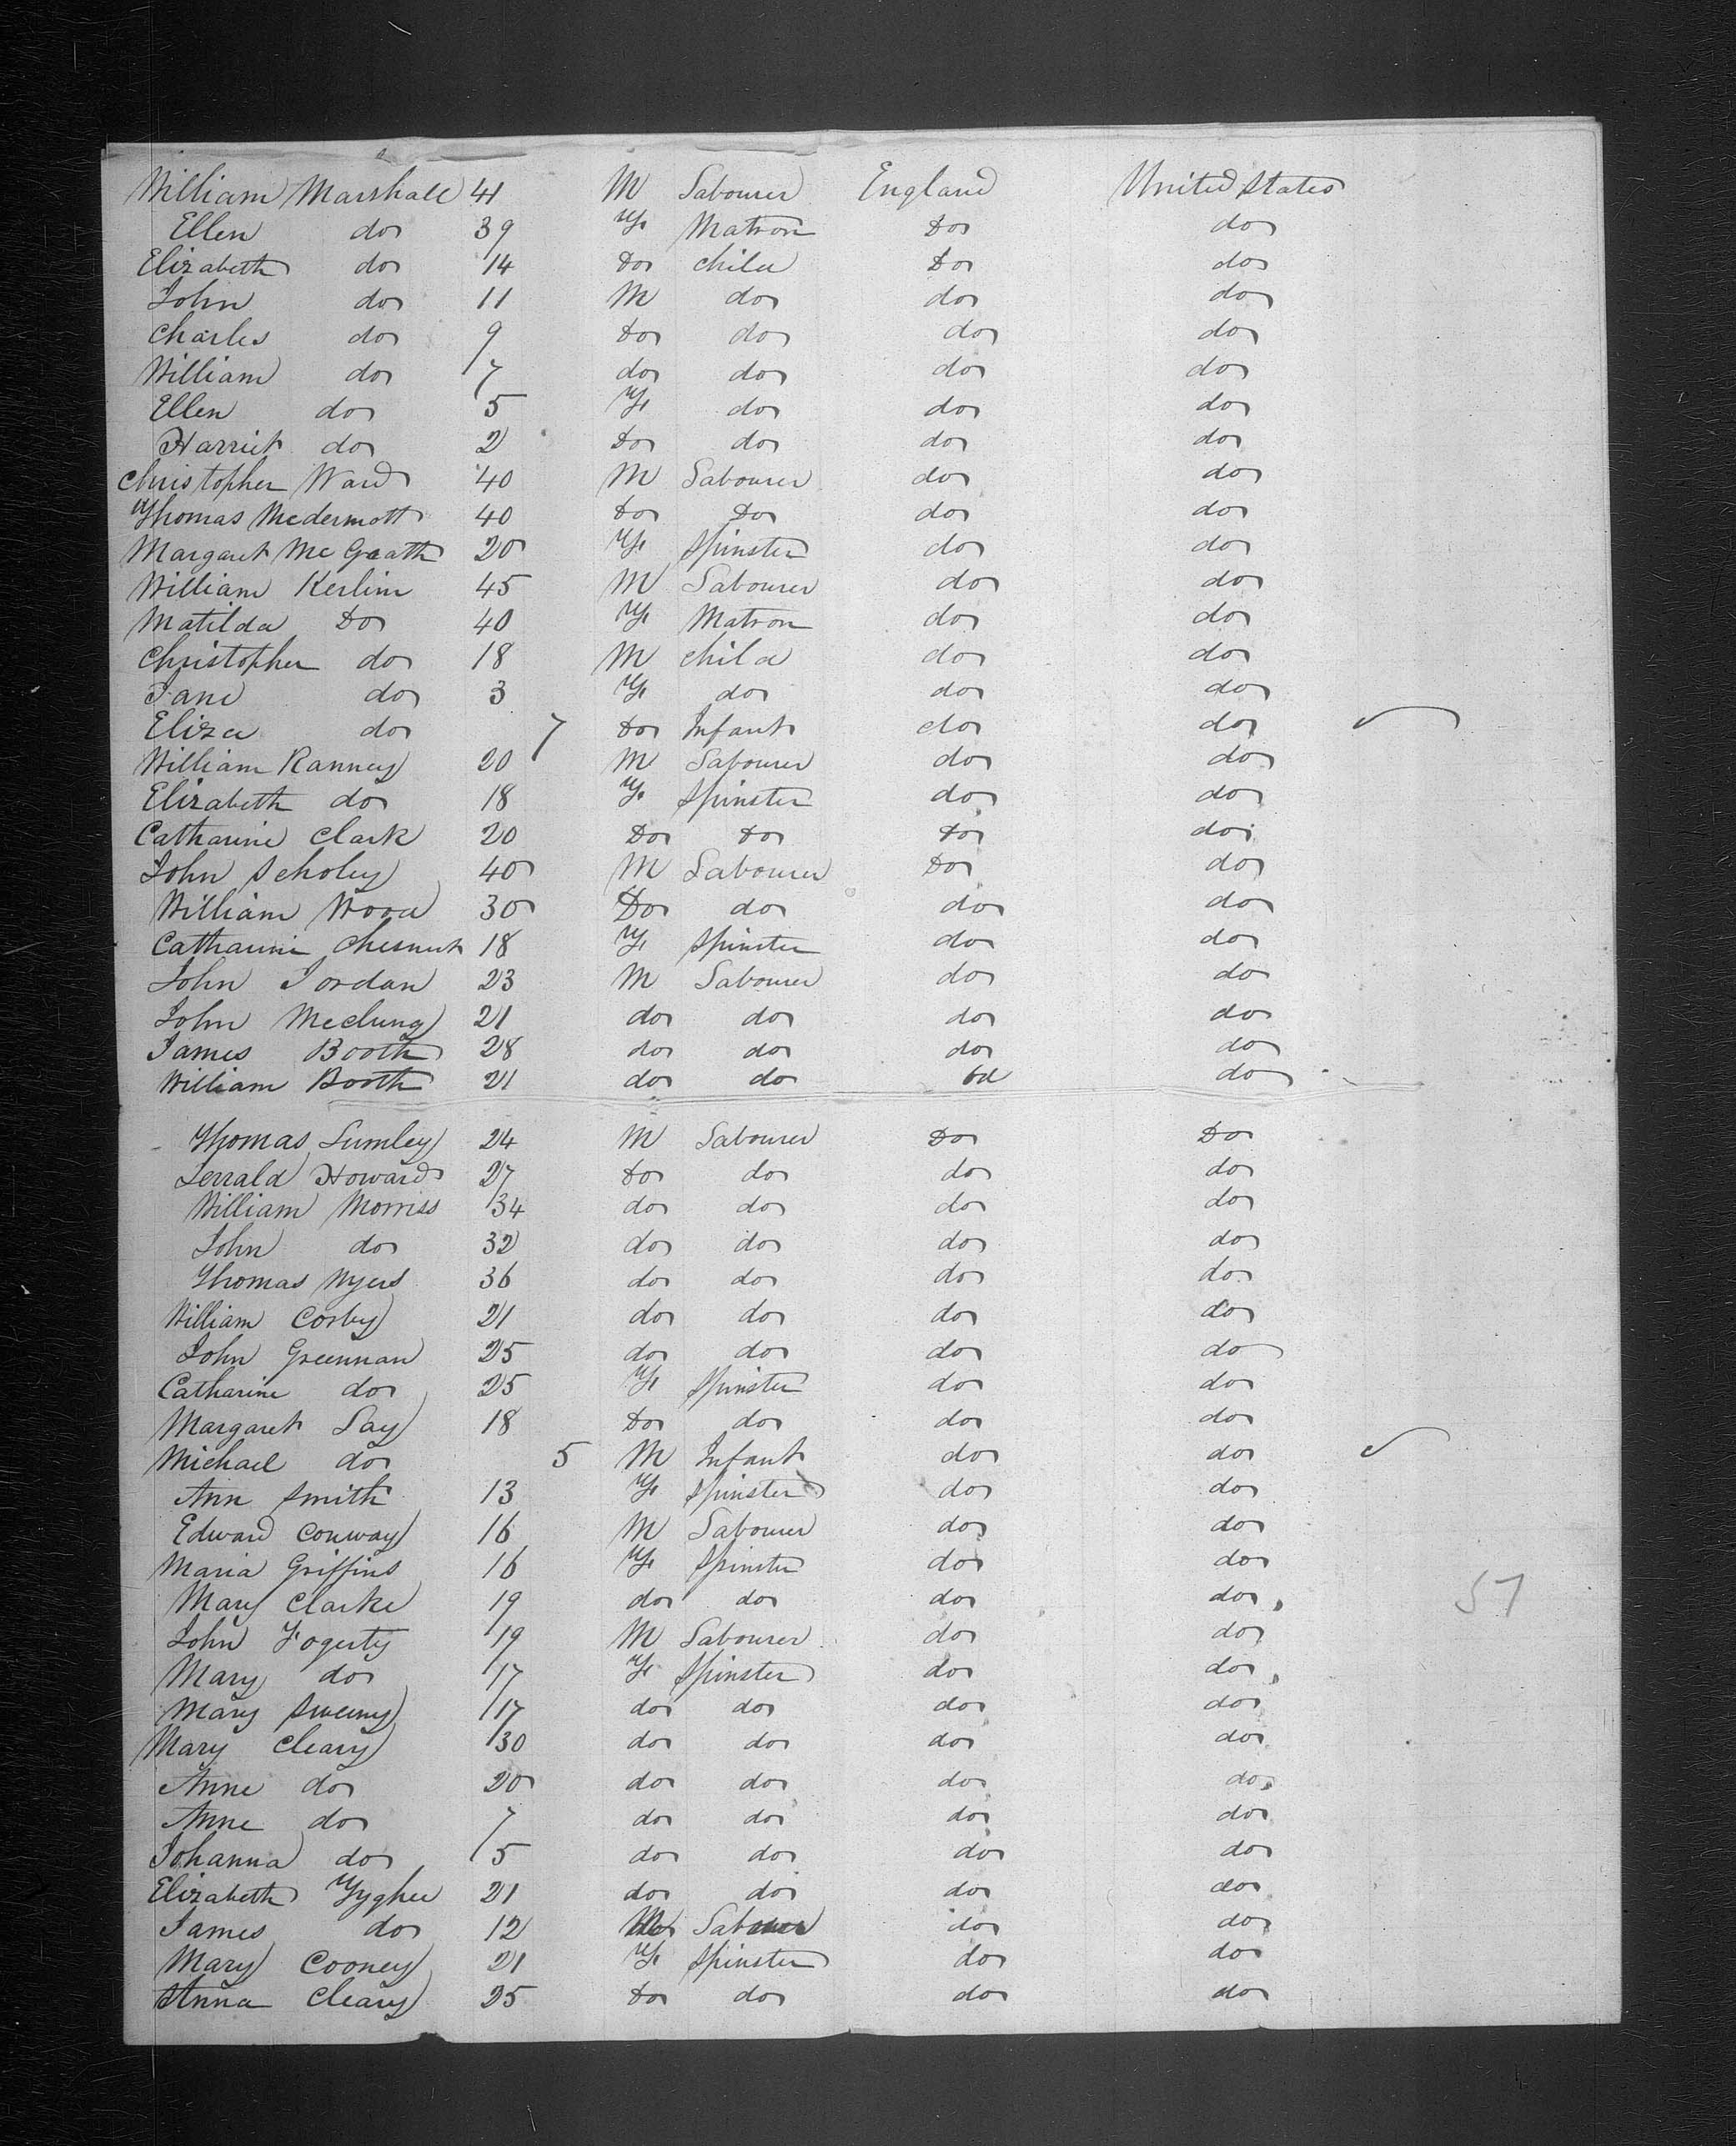 William Marshall 41 M Labourer England United States
Ellen do 39 F. Matron Do do
Elizabeth do 14 Do child Do do
John do 11 M do do do
Charles do 9 Do do do do
William do 7 do do do do
Ellen do 5 F. do do do
Harriet do 2 Do do do do
Christopher Ward 40 M Labourer do do
Thomas Mcdermott 40 Do Do do do
Margaret Mc Graath 20 F. Spinster do do
William Kerlin 45 M Labourer do do
Matilda Do 40 F. Matron do do
Christopher do 18 M child do do
Jane do 3 F. do do do
Eliza do 7 Do Infant do do
William Ranney 20 M Labourer do do
Elizabeth do 18 F. Spinster do do
Catharine Clark 20 Do Do Do do
John Scholey 40 M Labourer Do do
William Wood 30 Do do do do
Catharine Chesnut 18 F. Spinster do do
John Jordan 23 M Labourer do do
John Mcclung 21 do do do do
James Booth 28 do do do do
William Booth 21 do do do
Thomas Lumley 24 M Labourer Do Do
Jerrald Howard 27 Do do do do
William Morriss 34 do do do do
John do 32 do do do do
Thomas Nyers 36 do do do do
William Corby 21 do do do do
John Greennan 25 do do do do
Catharine do 25 F. Spinster do do
Margaret Lay 18 Do do do do
Michael do 5 M Infant do do
Ann Smith 13 F. Spinster do do
Edward Conway 16 M Labourer do do
Maria Griffins 16 F. Spinster do do
Mary Clarke 19 do do do do
51
John Fogerty 19 M Labourer do do
Mary do 17 F. Spinster do do
Mary Sweeny 17 do do do do
Mary Cleary 30 do do do do
Anne do 20 do do do do
Anne do 7 do do do do
Johanna do 5 do do do do
Elizabeth Fyghee 21 do do do do
James do 12 M Labourer do do
Mary Cooney 21 F. Spinster do do
Anna Cleary 25 Do do do do